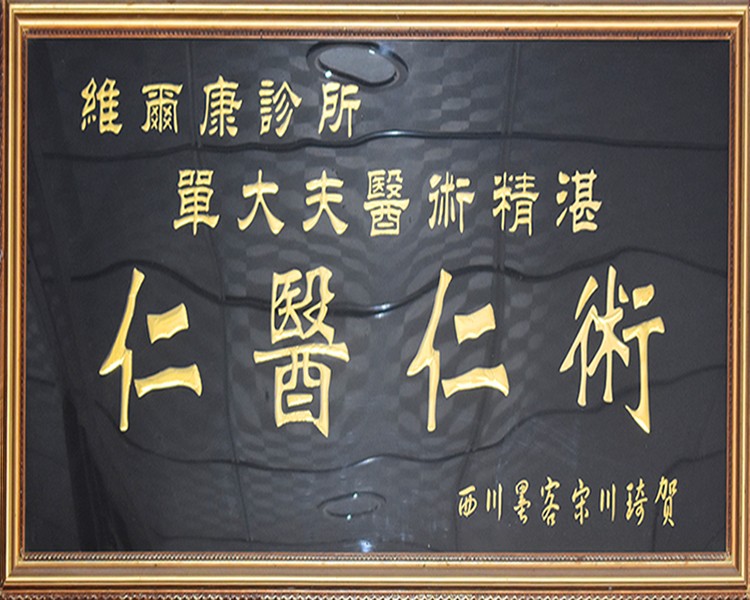 維爾康診所
單大夫醫術精湛
仁醫仁術
西川墨客宗川琦賀